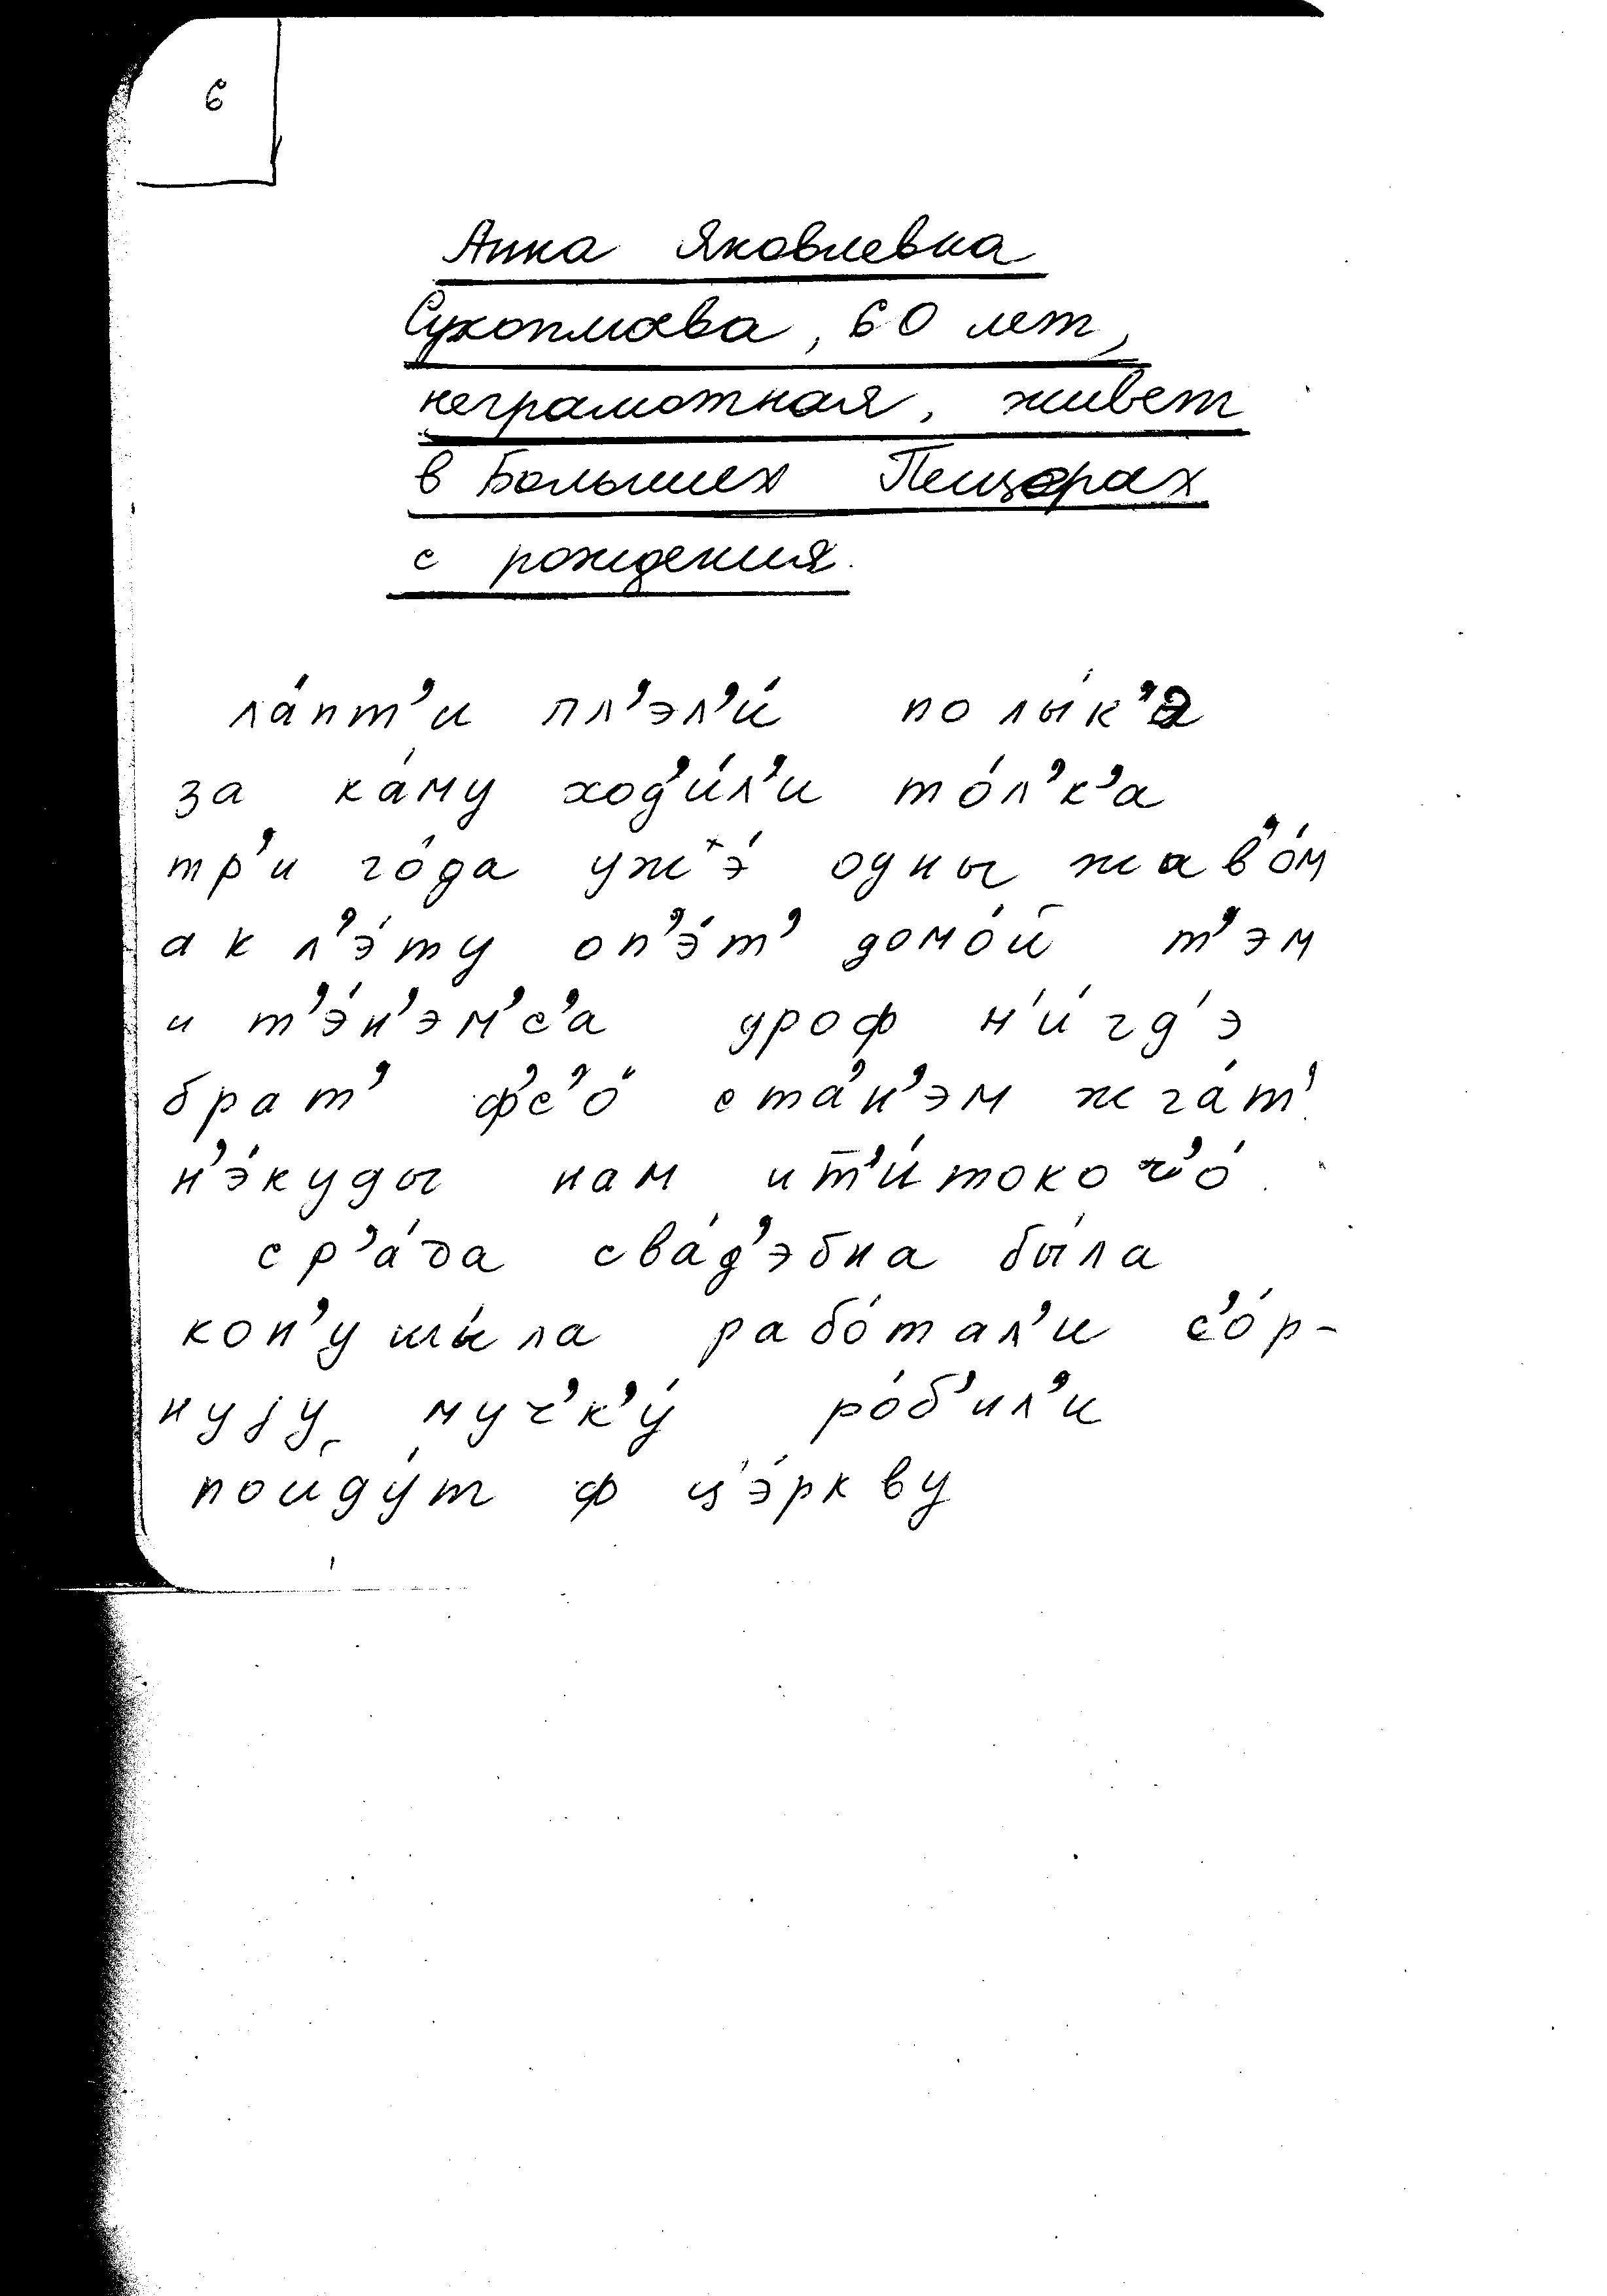 6
Анна Яковлевна
Сухоплюева, 60 лет,
неграмотная, живет
в Больших Пещорах
с рождения.
ла́пт’и пл’эл’и́ по лы́к’э
за ка́му ход’и́л’и то́л’к’а
тр’и го́да уж э́ одны жав’о́м
а к л’э́ту оп’э́т’ домо́й т’эм
и т’э́н’эм’с’а дроф н’и́гд’э
брат’ ф’с’о́ ста́н’эм жга́т’
н’э́куды нам ит’и́ токо ч’о́
ср’а́да сва́д’эбна бы́ла
кон’у шы́ла рабо́тал’и с’о́р-
нуjу муч’к’у́ ро́б’ил’и
пойду́т ф ц’э́ркву